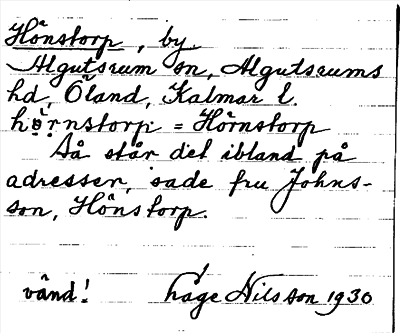 Hönstorp, by
Algutsrum sn, Algutsrums
hd, Öland, Kalmar l.
hö̤rnstorp = Hörnstorp
Så står det ibland på
adresser, sade fru Johns-
son, Hönstorp.
vänd! Hage Nilsson 1930